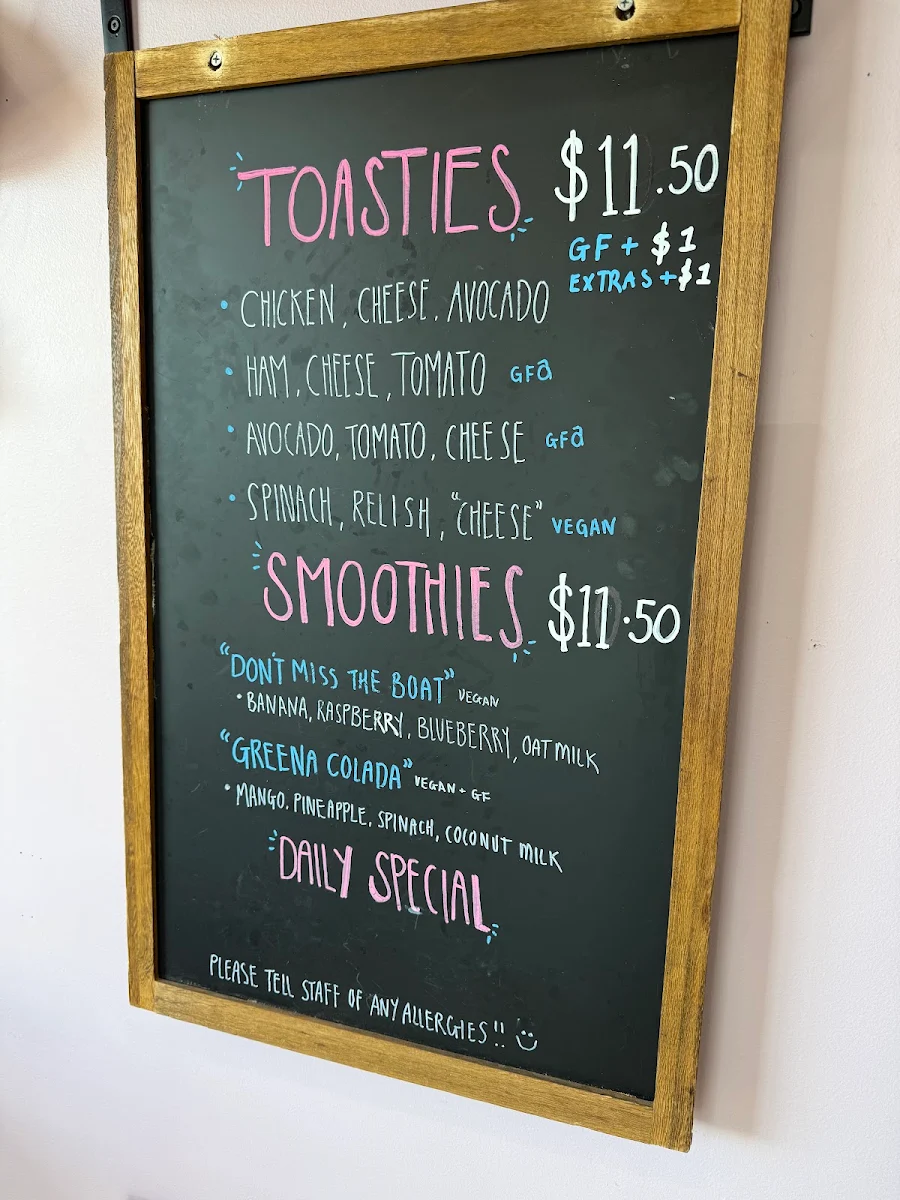 TOASTIES $11.50
GF + $1
EXTRAS + $1
• CHICKEN, CHEESE, AVOCADO
• HAM, CHEESE, TOMATO GFa
• AVOCADO, TOMATO, CHEESE GFa
• SPINACH, RELISH, "CHEESE" VEGAN
SMOOTHIES $11.50
"DON'T MISS THE BOAT" VEGAN
• BANANA, RASPBERRY, BLUEBERRY, OAT MILK
"GREENA COLADA" VEGAN + GF
• MANGO, PINEAPPLE, SPINACH, COCONUT MILK
DAILY SPECIAL
PLEASE TELL STAFF OF ANY ALLERGIES!! ☺